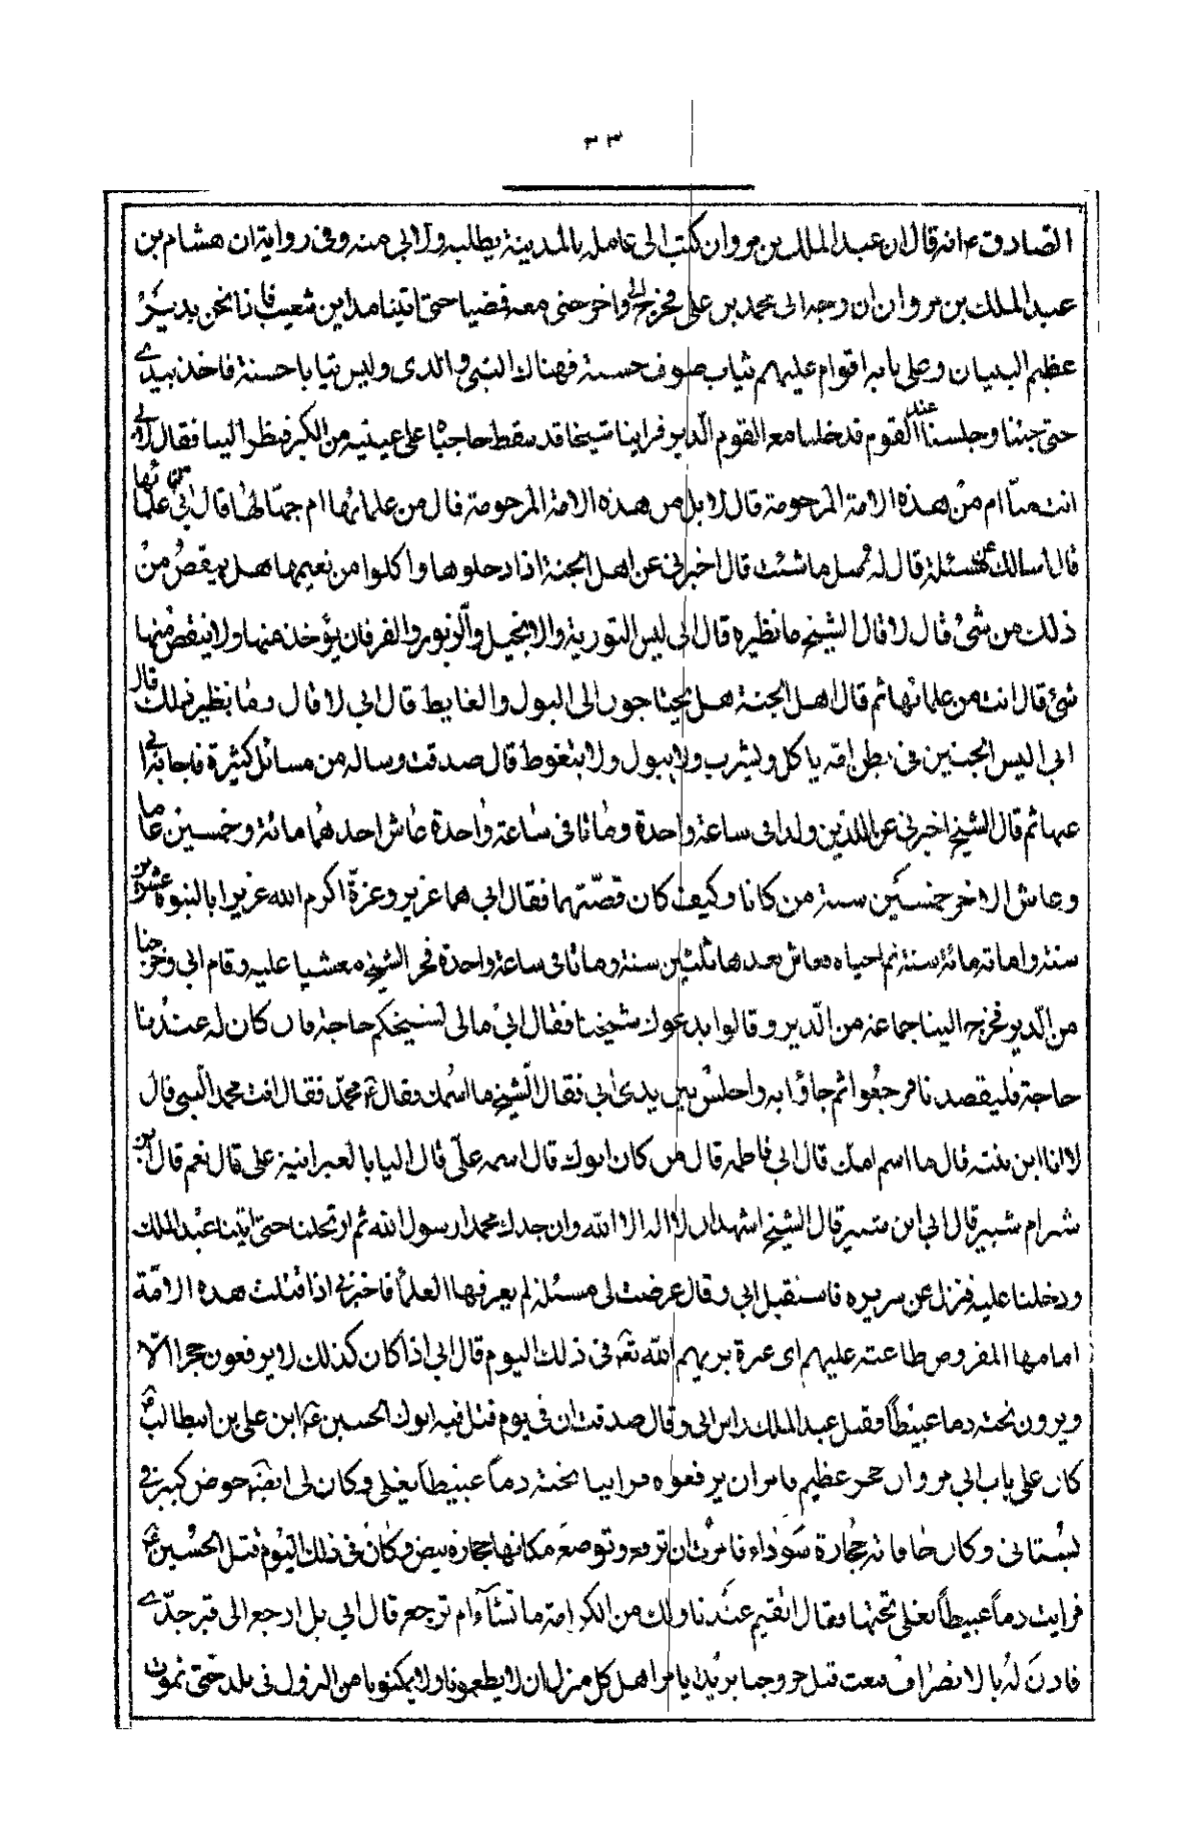 ٣٣
الصادق ع انه قال ان عبد الملك بن مروان كتب الى عامله بالمدينة يطلبه ولابى منه وفى رواية ان هشام بن
عبد الملك بن مروان ان وجه الى محمد بن على فخرج الى واخرجنى معه فمضينا حتى اتينا مداين شعيب فاذا نحن بدير
عظيم البنيان وعلى بابه اقوام عليهم ثياب صوف خسنة فهناك النبى والدى وليس ثيابا خسنة فاخذ بيدى
حتى جئنا وجلسنا عند القوم فدخلنا مع القوم الدير فراينا شيخا قد سقط حاجباه على عينيه من الكبر فنظر الينا فقال لابى
انت منا ام من هذه الامة المرحومة قال لا بل من هذه الامة المرحومة قال من علمائها ام جهالها قال ابى من علمائها
قال اسالك عن مسئلة قال له سل ما شئت قال اخبرنى عن اهل الجنة اذا دخلوها واكلوا من نعيمها هل ينقص من
ذلك من شئ قال لا قال الشيخ ما نظيره قال ابى ليس التورية والانجيل والزبور والفرقان يؤخذ منها ولا ينقص منها
شئ قال انت من علمائها ثم قال اهل الجنة هل يحتاجون الى البول والغايط قال ابى لا قال وما نظير ذلك قال
ابى اليس الجنين فى بطن امه ياكل ويشرب ولا يبول ولا يتغوط قال صدقت وساله من مسائل كثيرة فاجابه ابى
عنها ثم قال الشيخ اخبرنى عن اللذين ولدا فى ساعة واحدة وماتا فى ساعة واحدة عاش احدهما مائة وخمسين عاما
وعاش الاخر خمسين سنة من كانا وكيف كان قصتهما فقال ابى هما عزير وعزرة اكرم الله عزيرا بالنبوة عشرين
سنة واماته مائة سنة ثم احياه فعاش بعدها ثلثين سنة وماتا فى ساعة واحدة فخر الشيخ مغشيا عليه وقام ابى وخرجنا
من الدير فخرج الينا جماعة من الدير وقالوا يدعوك شيخنا فقال ابى مالى لشيخكم حاجة فان كان له عندنا
حاجة فليقصدنا فرجعوا ثم جاؤا به واجلس بين يدى ابى فقال الشيخ ما اسمك فقال ع محمد فقال انت محمد النبى قال
لا انا ابن بنته قال ما اسم امك قال ابى فاطمه قال من كان ابوك قال اسمه على قال اليا بالعبرانية على قال نعم قال ابن
شبر ام شبير قال ابى ابن شبير قال الشيخ اشهد ان لا اله الا الله وان جدك محمد رسول الله ثم ارتحلنا حتى اتينا عبد الملك
ودخلنا عليه فنزل عن سريره فاستقبل ابى وقال عرضت لى مسئلة لم يعرفها العلماء فاخبرنى اذا قتلت هذه الامة
امامها المفروض طاعته عليهم اى عبرة يريهم الله تعم فى ذلك اليوم قال ابى اذا كان كذلك لا يرفعون حجرا الا
ويرون تحته دما عبيطا فقبل عبد الملك راس ابى وقال صدقت ان فى يوم قتل فيه ابوك الحسين ع ابن على بن ابيطالب ع
كان على باب ابى مروان حجر عظيم فامر ان يرفعوه فراينا تحته دماً عبيطاً يغلى وكان لى ايضا حوض كبير فى
بستانى وكان حافاته حجارة سوداء فامرت ان ترفع وتوضع مكانها حجارة بيض وكان فى ذلك اليوم قتل الحسين ع
فرايت دماً عبيطاً يغلى تحتها فقال اتقيم عندنا ولك من الكرامة ما تشاء ام ترجع قال ابى بل ارجع الى قبر جدى
فاذن له بالانصراف فبعث قبل خروجنا بريدا يامر اهل كل منزل ان لا يطعمونا ولا يمكنونا من النزول فى بلد حتى نموت